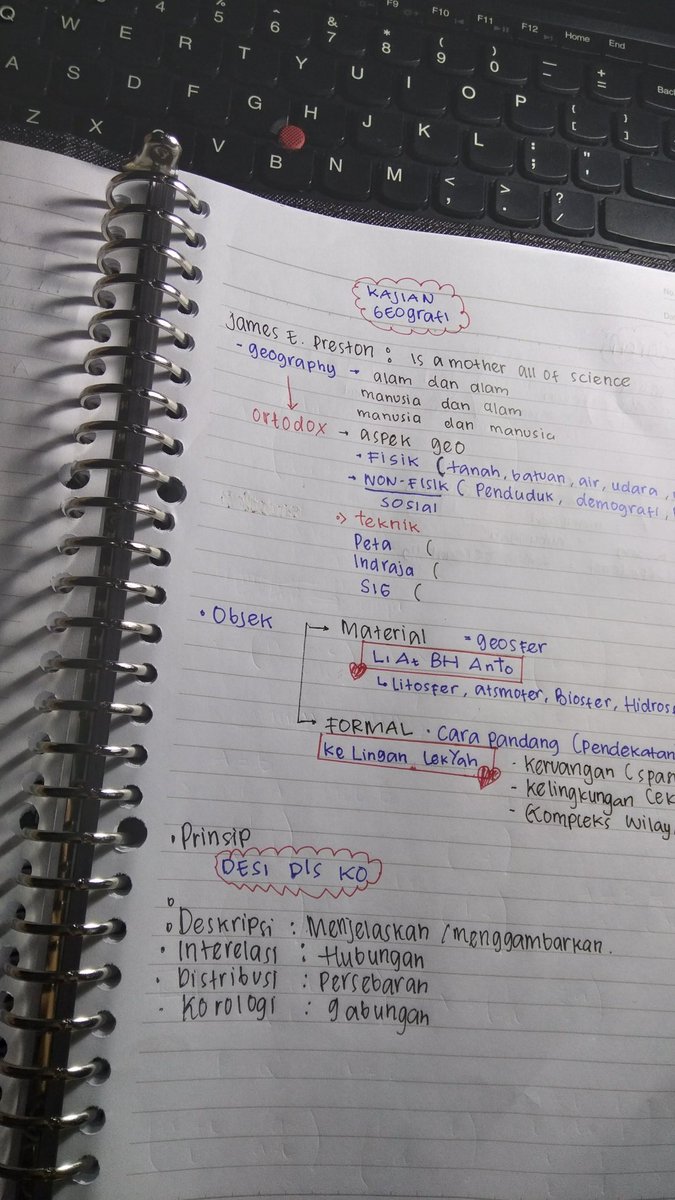 F9 F10 F11 F12 Home End
4 % 5 ^ 6 & 7 * 8 ( 9 ) 0 — - + =
Q W E R T Y U I O P { [ } ]
A S D F G H J K L : ; " '
Z X V B N M < , > . ? /
KAJIAN
GEOgrafi
James E. Preston : is a mother all of science
- geography → alam dan alam
manusia dan alam
manusia dan manusia
ortodox → aspek geo
• FISIK (tanah, batuan, air, udara,
→ NON-FISIK ( Penduduk, demografi,
SOSIAl
:> teknik
Peta (
Indraja (
SIG (
• Objek → Material = geosfer
LiAt BH Anto
↳ Litosfer, atsmofer, Biosfer, Hidros
→ FORMAL • Cara pandang (Pendekatan
Ke Lingan LekYah
- Keruangan (spa
- kelingkungan (ek
- Kompleks wilay
• Prinsip
DESI DIS KO
• Deskripsi : Menjelaskan / menggambarkan.
• Interelasi : Hubungan
• Distribusi : Persebaran
• Korologi : gabungan